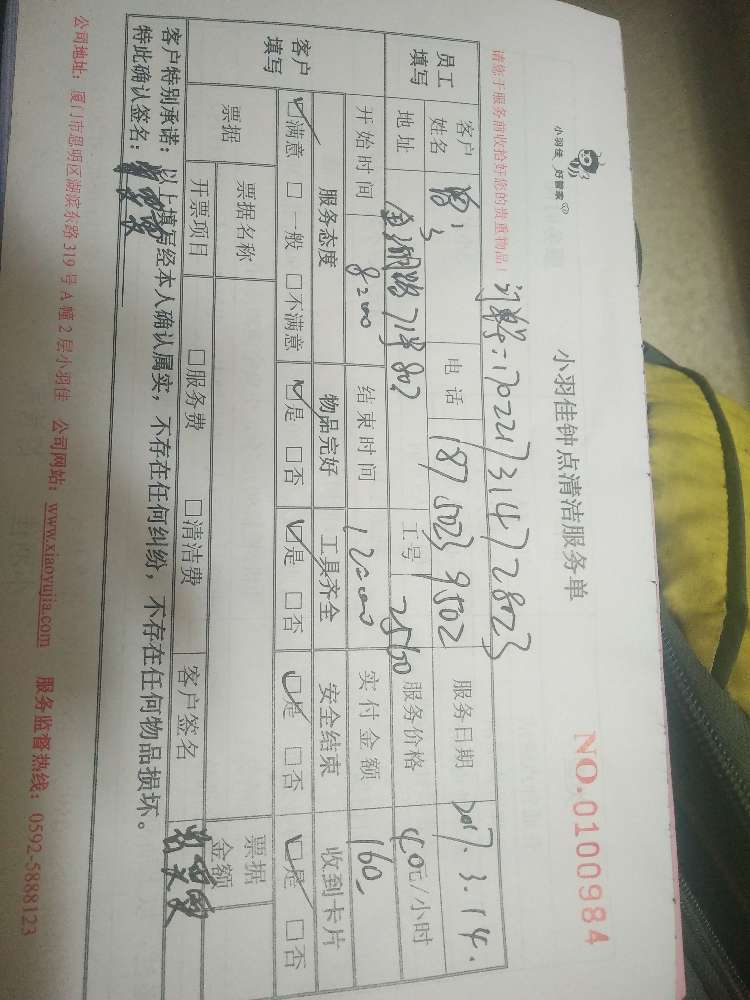 小羽佳 好管家
小羽佳钟点清洁服务单
NO.0100984
请您于服务前收拾好您的贵重物品!
170221731472823
员工填写
客户姓名
电话 18750239502
服务日期 2017.3.14.
地址 金湖路71号802
工号 25150
服务价格 40元/小时
开始时间 8:00
结束时间 12:00
实付金额 160
客户填写
服务态度 物品完好 工具齐全 安全结束 收到卡片
☑满意 □一般 □不满意 ☑是 □否 ☑是 □否 ☑是 □否 ☑是 □否
票据 票据名称 票据金额
开票项目 □服务费 □清洁费 客户签名
客户特别承诺:以上填写经本人确认属实,不存在任何纠纷,不存在任何物品损坏。
特此确认签名:
公司地址:厦门市思明区湖滨东路319号A幢2层小羽佳 公司网站:www.xiaoyujia.com 服务监督热线:0592-5888123